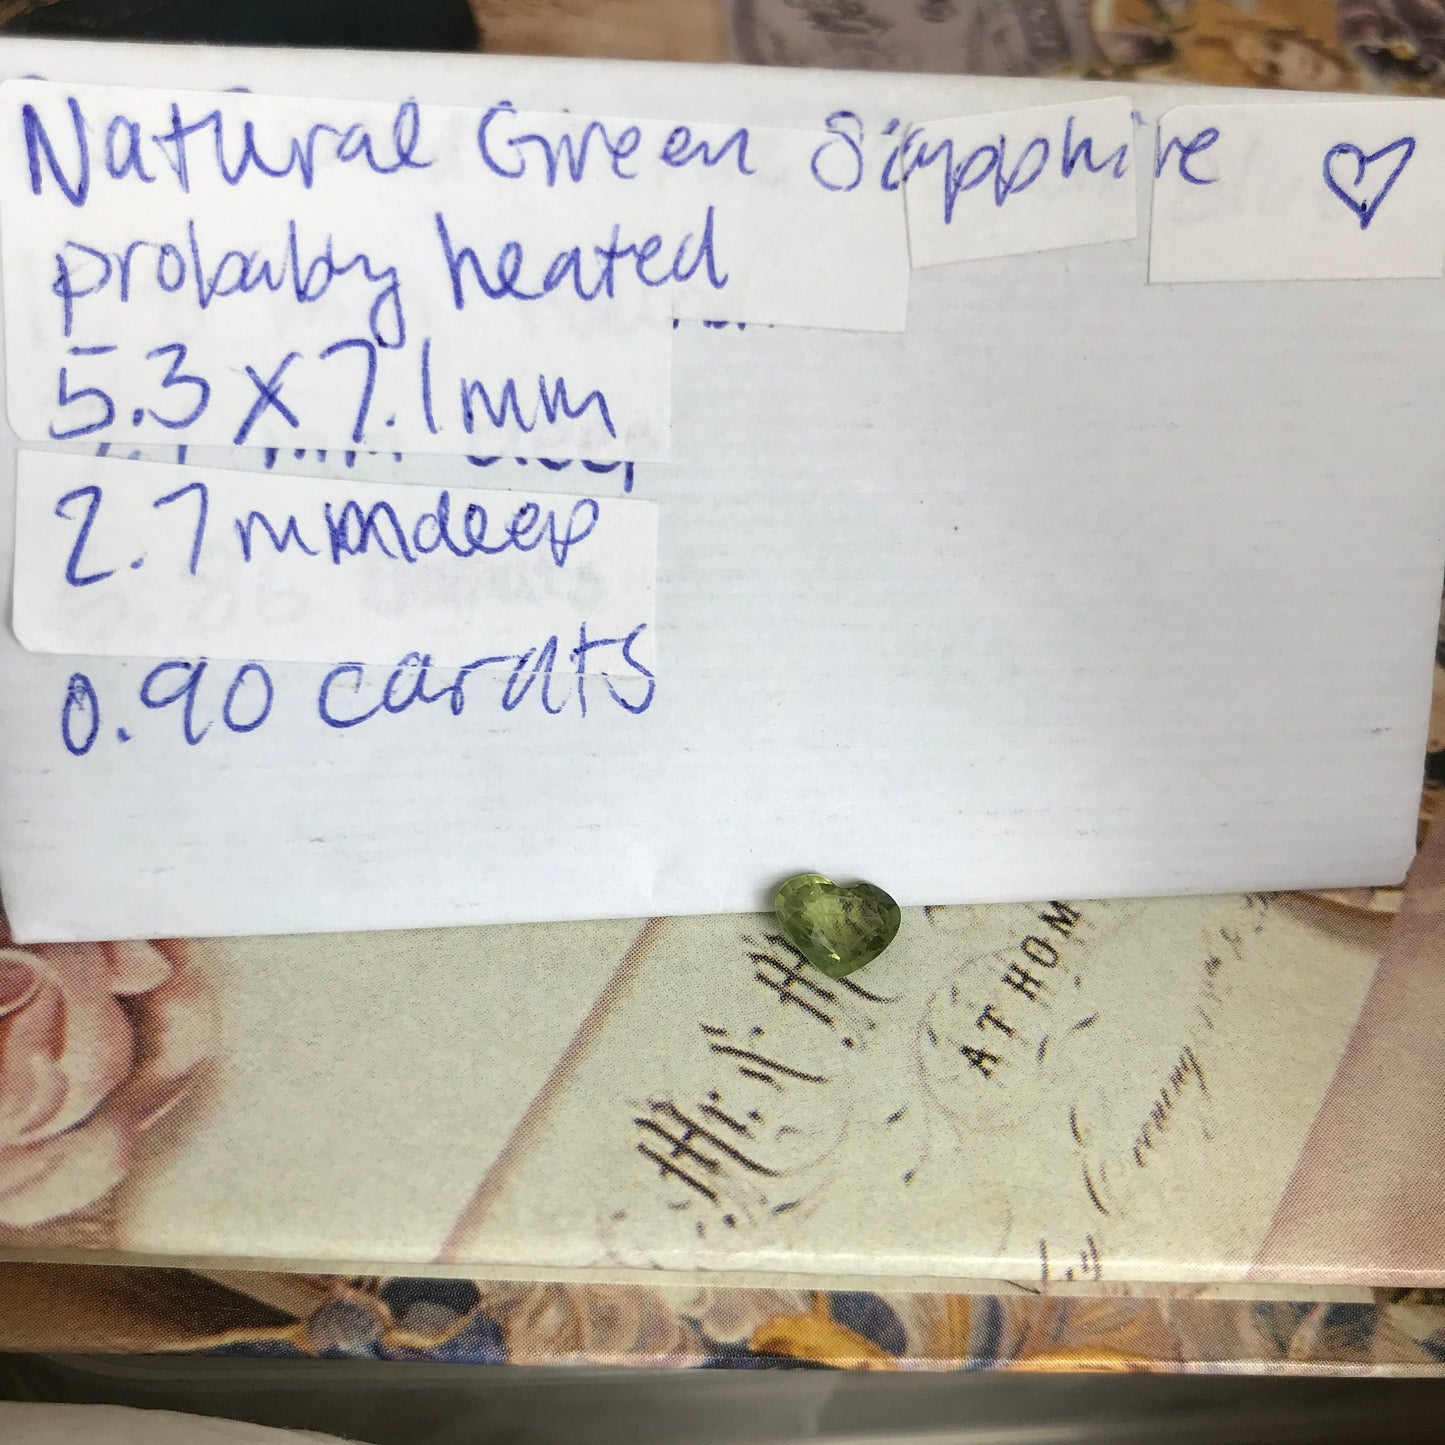 Natural Green Sapphire ♡
probably heated
5.3 x 7.1mm
2.7 mm deep
0.90 carats
AT HOM